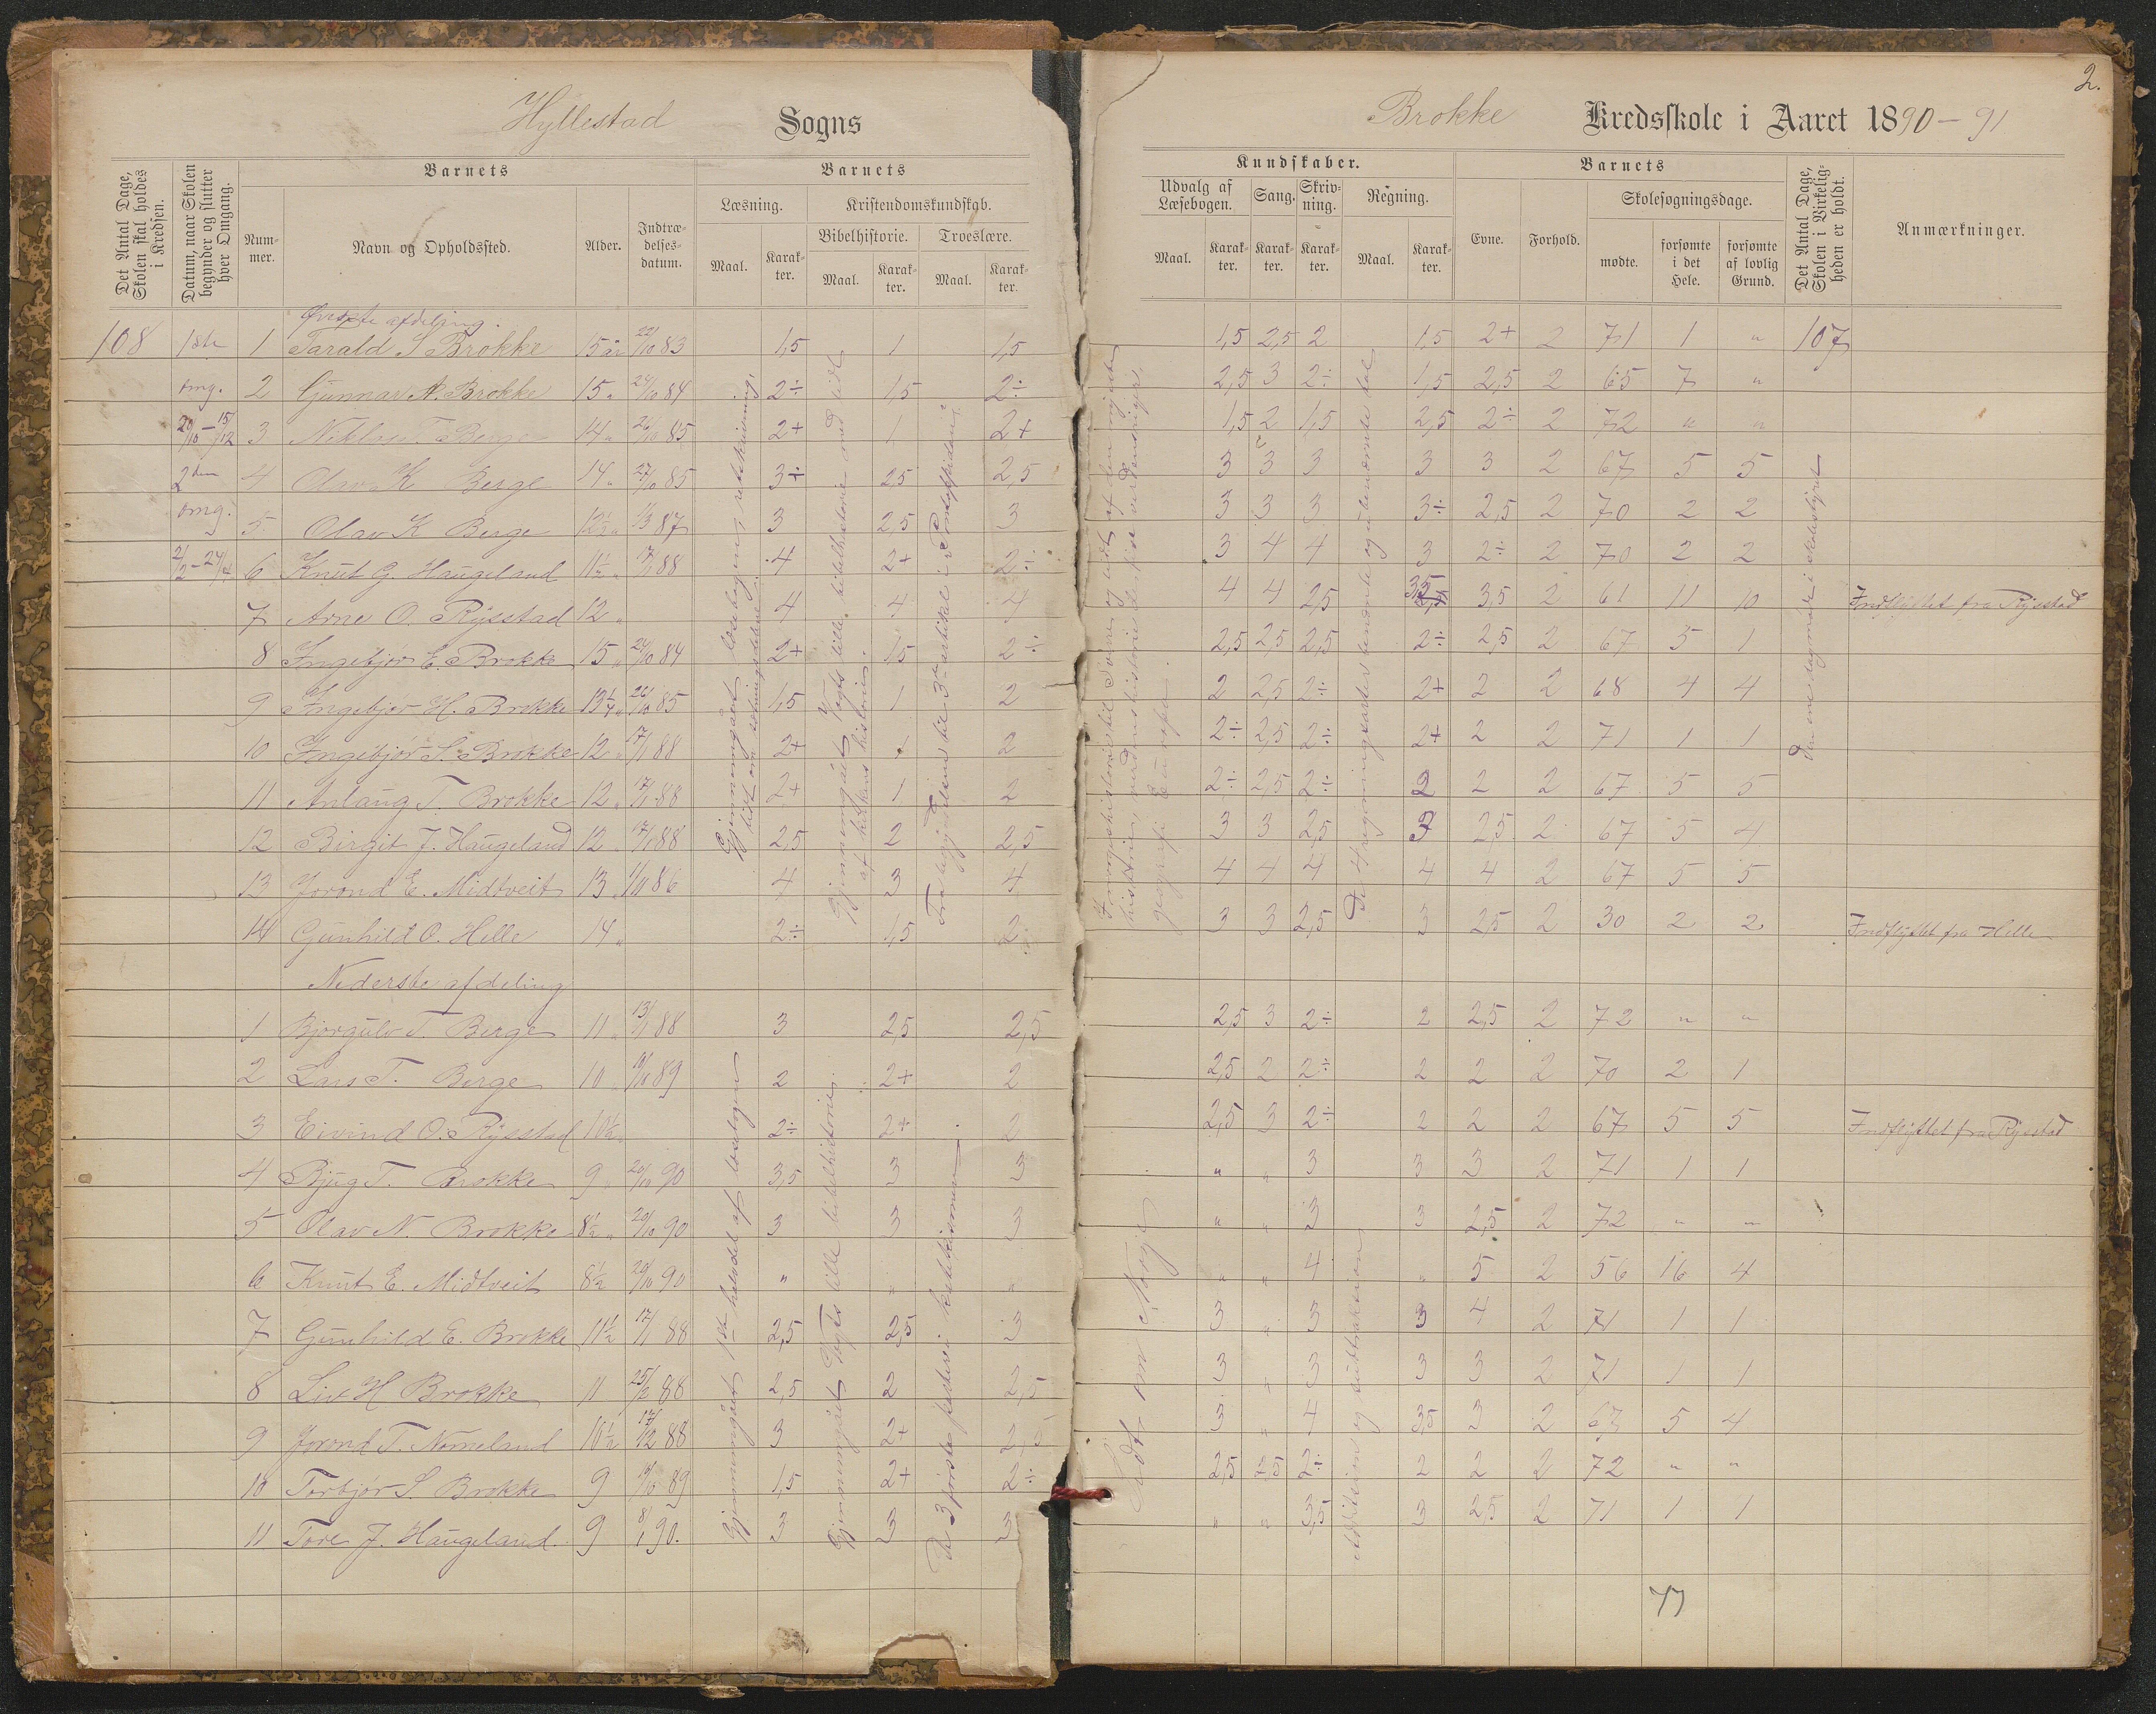 2.
Hyllestad Sogns
Brokke Kredsskole i Aaret 1890-91
Det Antal Dage, Skolen skal holdes i Kredsen.
Datum, naar Skolen begynder og slutter hver Omgang.
Barnets
Nummer.
Navn og Opholdssted.
Alder.
Indtrædelsesdatum.
Barnets
Læsning.
Maal.
Karakter.
Kristendomskundskab.
Bibelhistorie.
Maal.
Karakter.
Troeslære.
Maal.
Karakter.
Kundskaber.
Udvalg af Læsebogen.
Maal.
Karakter.
Sang.
Karakter.
Skrivning.
Karakter.
Regning.
Maal.
Karakter.
Barnets
Evne.
Forhold.
Skolesøgningsdage.
mødte.
forsømte i det Hele.
forsømte af lovlig Grund.
Det Antal Dage, Skolen i Virkeligheden er holdt.
Anmærkninger.
Øverste afdeling.
108 1ste 1 Tarald S Brokke 15 år 22/10 83 1,5 1 1,5 1,5 2,5 2 1,5 2+ 2 71 1 " 107
omg. 2 Gunnar A. Brokke 15 " 24/10 84 2÷ 1,5 2÷ 2,5 3 2÷ 1,5 2,5 2 65 7 "
20/10 - 15/12 3 Niklos T. Berge 14 " 26/10 85 2+ 1 2+ 1,5 2 1,5 2,5 2÷ 2 72 " "
2den 4 Olav K Berge 14 " 27/10 85 3÷ 2,5 2,5 3 3 3 3 3 2 67 5 5
omg. 5 Olav K Berge 12½ " 1/3 87 3 2,5 3 3 3 3 3÷ 2,5 2 70 2 2
2/2 - 24/4 6 Knut G. Haugeland 11½ " 17/1 88 4 2+ 2÷ 3 4 4 3 2÷ 2 70 2 2
7 Arne O. Rysstad 12 " 4 4 4 4 4 2,5 3,5 3,5 2 61 11 10 Indflyttet fra Rysstad
8 Ingebjør E. Brokke 15 " 24/10 84 2+ 1,5 2÷ 2,5 2,5 2,5 2÷ 2,5 2 67 5 1
9 Ingebjør H. Brokke 13¼ " 26/10 85 1,5 1 2 2 2,5 2÷ 2+ 2 2 68 4 4
10 Ingebjør S. Brokke 12 " 17/1 88 2+ 1 2 2÷ 2,5 2÷ 2+ 2 2 71 1 1
11 Anlaug T. Brokke 12 " 17/1 88 2+ 1 2 2÷ 2,5 2÷ 2 2 2 67 5 5
12 Birgit J. Haugeland 12 " 17/1 88 2,5 2 2,5 3 3 2,5 3 2,5 2 67 5 4
13 Jorond E. Midtveit 13 " 1/11 86 4 3 4 4 4 4 4 4 2 67 5 5
14 Gunhild O. Helle 14 " 2÷ 1,5 2 3 3 2,5 3 2,5 2 30 2 2 Indflyttet fra Helle
Nederste afdeling
1 Bjørgulv T. Berge 11 " 13/1 88 3 2,5 2,5 2,5 3 2÷ 2 2,5 2 72 " "
2 Lars T. Berge 10 " 9/10 89 2 2+ 2 2,5 2 2÷ 2 2 2 70 2 1
3 Eivind O. Rysstad 10½ " 2÷ 2+ 2 2,5 3 2÷ 2 2 2 67 5 5 Indflyttet fra Rysstad
4 Bjug T. Brokke 9 " 20/10 90 3,5 3 3 " " 3 3 3 2 71 1 1
5 Olav N. Brokke 8½ " 20/10 90 3 3 3 " " 3 3 2,5 2 72 " "
6 Knut E. Midtveit 8½ 20/10 90 " " " " " 4 " 5 2 56 16 4
7 Gunhild E. Brokke 11½ 17/1 88 2,5 2,5 3 3 " 3 3 4 2 71 1 1
8 Liv H Brokke 11 25/2 88 2,5 2 2,5 3 " 3 3 3 2 71 1 1
9 Jorond T. Nomeland 10½ 17/12 88 3 2+ 3 " 4 3,5 3 2 67 5 4
10 Torbjør S. Brokke 9 14/10 89 1,5 2+ 2÷ 2,5 2,5 2÷ 2 2 2 72 " "
11 Tore J. Haugeland. 9 8/1 90. 3 3 3 " " 3,5 3 2,5 2 71 1 1
77
Gjennemgået læsebogen, retskrivning,
lidt om sætningsdelene.
Gjennemgået Vogts lille bibelhistorie med lidt
af kirkens historie.
Fra begyndelsen til 3die artikkel i Pontoppidan
historien, verdenshistorie
geografi Europa.
De 4 regningsarter i benævnte og ubenævnte tal
den ene dag møde i skolestyret
Gjennemgået 1ste halvdel af læsebogen
Gjennemgået Vogts lille bibelhistorie.
De 3 første parter i katekismen
Lidt om Norge
Addition og subtraktion